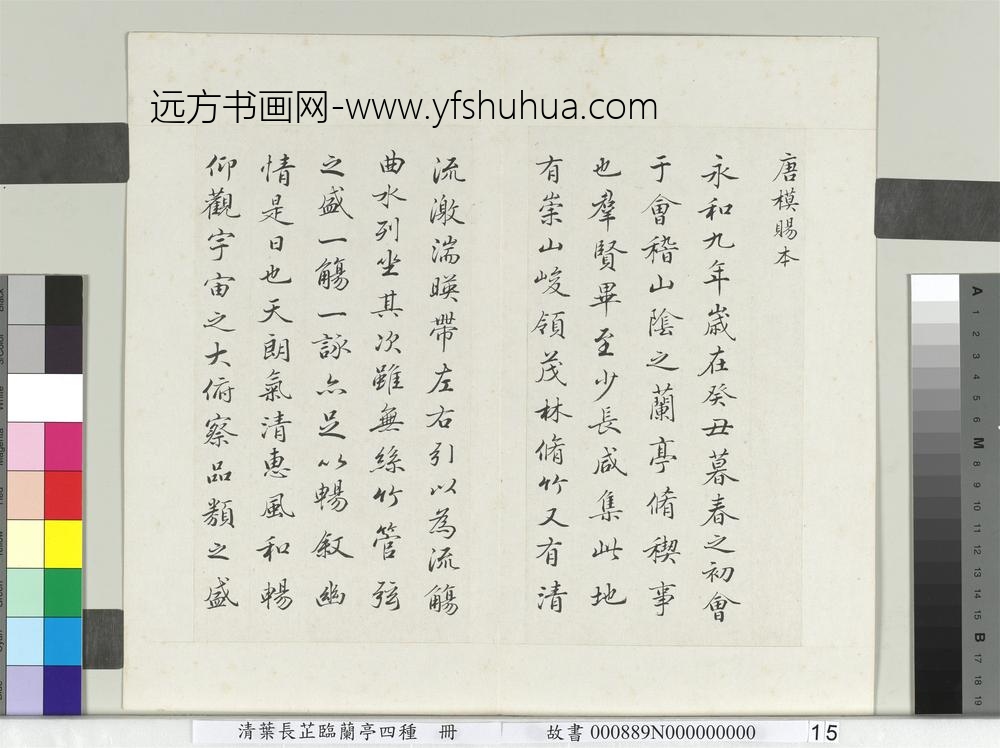 远方书画网-www.yfshuhua.com
唐模賜本
永和九年歲在癸丑暮春之初會
于會稽山陰之蘭亭脩稧事
也羣賢畢至少長咸集此地
有崇山峻領茂林脩竹又有清
流激湍暎帶左右引以為流觴
曲水列坐其次雖無絲竹管弦
之盛一觴一詠亦足以暢叙幽
情是日也天朗氣清惠風和暢
仰觀宇宙之大俯察品類之盛
清葉長芷臨蘭亭四種 冊 故書 000889N000000000 15
A 1 2 3 4 5 6 M 8 9 10 11 12 13 14 15 B 17 18 19